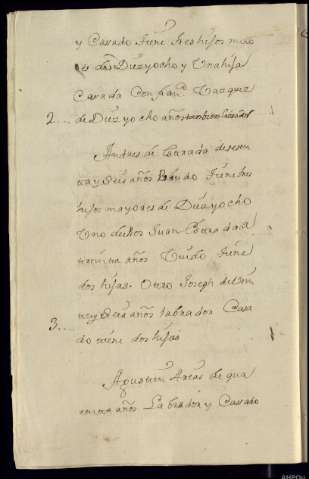 y Casado tiene tres hijos maio
res de Diez y ocho y Una hija
Casada Con Juan Vazquez
2... de Diez y ocho años tambien labrador
Andres de Parada de sesen
ta y seis años Viudo tiene tres
hijos mayores de Diez y ocho
Uno dellos Juan Parada de
treinta años Viudo tiene
dos hijas. Otro Joseph de vein
te y seis años labrador Casa
3... do tiene dos hijas
Agustin Areas de qua
renta años Labrador y Casado